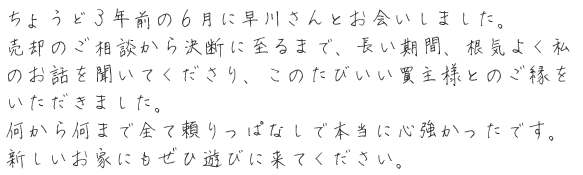 ちょうど3年前の6月に早川さんとお会いしました。
売却のご相談から決断に至るまで、長い期間、根気よく私
のお話を聞いてくださり、このたびいい買主様とのご縁を
いただきました。
何から何まで全て頼りっぱなしで本当に心強かったです。
新しいお家にもぜひ遊びに来てください。